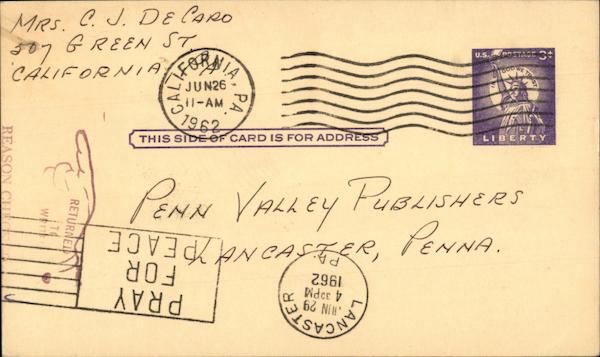 MRS. C. J. DECARO
507 GREEN ST
CALIFORNIA PA
CALIFORNIA, PA.
JUN 26
11-AM
1962
U.S. POSTAGE 3¢
IN GOD WE TRUST
LIBERTY
THIS SIDE OF CARD IS FOR ADDRESS
PENN VALLEY PUBLISHERS
LANCASTER, PENNA.
RETURNED
TO
REASON
PRAY
FOR
PEACE
LANCASTER
JUN 29
4 30 PM
1962
PA.